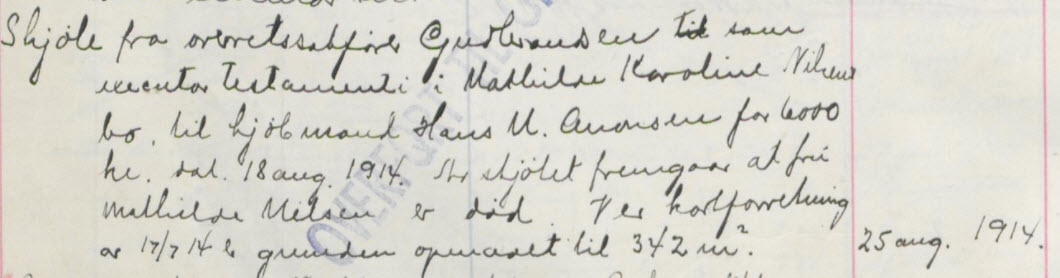 Skjøte fra overretssakfører Gudbrandsen til som
executor testamenti i Mathilde Karoline Nilsens
bo, til kjøbmand Hans M. Aronsen for 6000
kr. dat. 18 aug. 1914. Av skjøtet fremgaar at frk
Mathilde Nilsen er død. Ved kartforretning
av 17/7 14 er grunden opmaalt til 342 m². 25 aug. 1914.
OVERFØRT